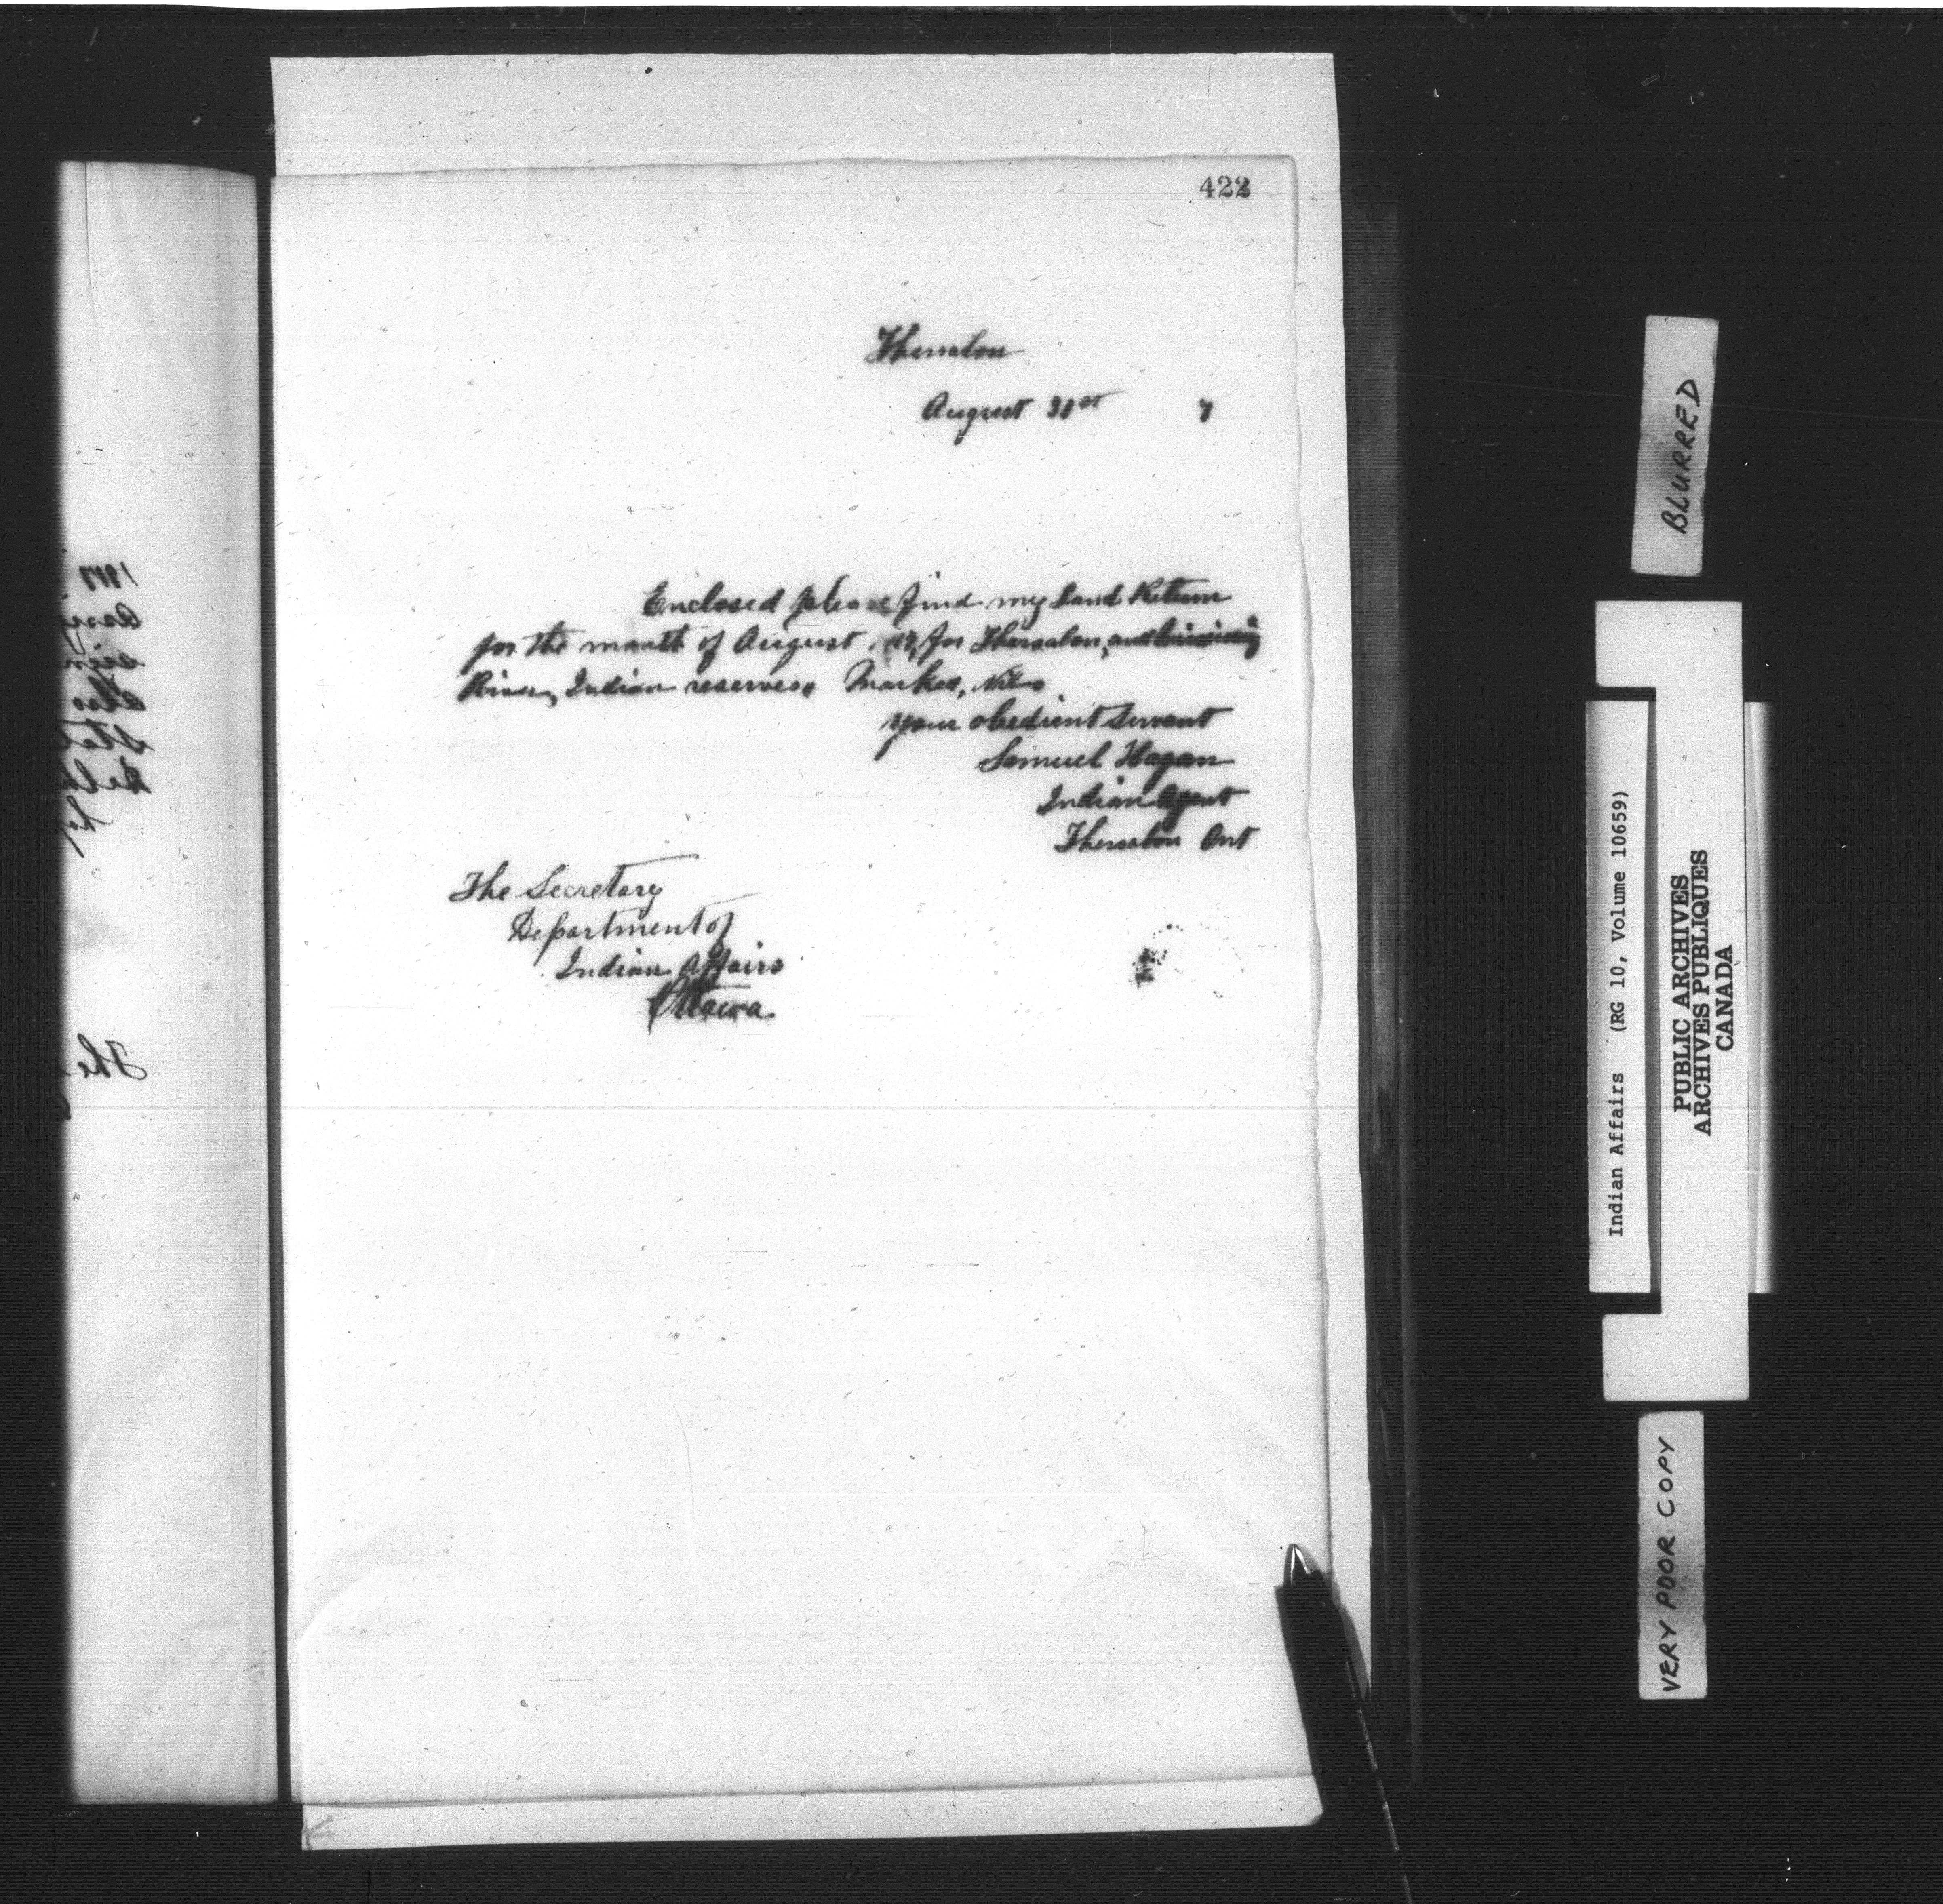 422
Thessalon
August 31st 7
Enclosed please find my Land Return
for the month of August for Thessalon, and
River, Indian reserves. Marked, Nil.
your obedient Servant
Samuel Hagan
Indian Agent
Thessalon Ont
The Secretary
Department of
Indian Affairs
Ottawa
BLURRED
Indian Affairs (RG 10, Volume 10659)
PUBLIC ARCHIVES
ARCHIVES PUBLIQUES
CANADA
VERY POOR COPY